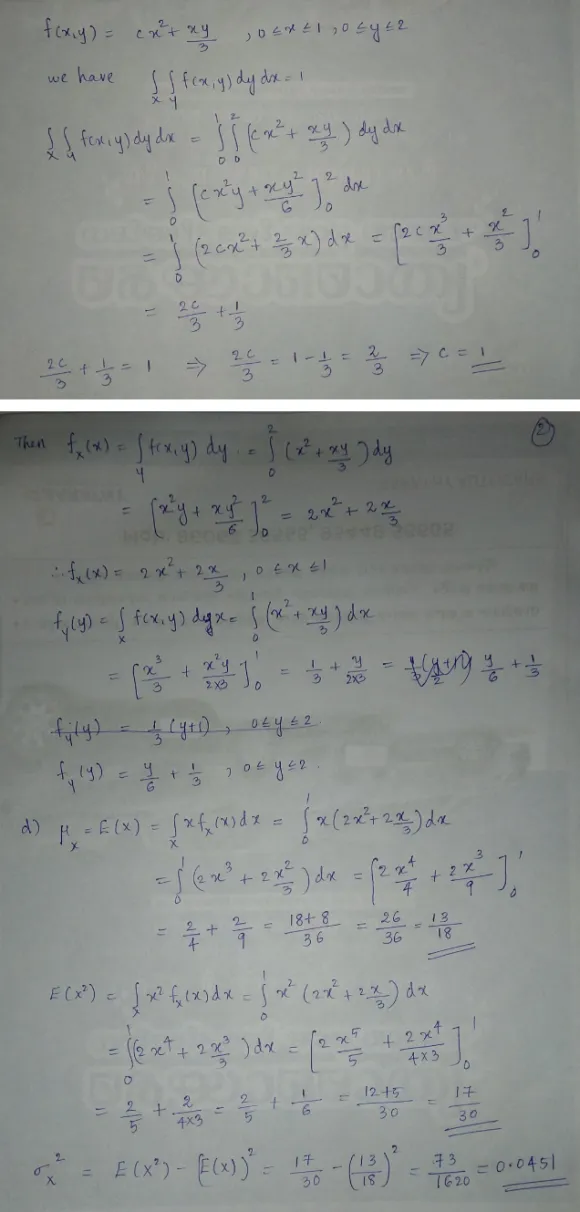 f(x,y) = cx² + xy/3 , 0≤x≤1, 0≤y≤2
we have ∫x ∫y f(x,y) dy dx = 1
∫x ∫y f(x,y) dy dx = ∫₀¹ ∫₀² (cx² + xy/3) dy dx
= ∫₀¹ [cx²y + xy²/6]₀² dx
= ∫₀¹ (2cx² + 2/3 x) dx = [2c x³/3 + x²/3]₀¹
= 2c/3 + 1/3
2c/3 + 1/3 = 1 ⇒ 2c/3 = 1 - 1/3 = 2/3 ⇒ c = 1
2
Then fx(x) = ∫y f(x,y) dy = ∫₀² (x² + xy/3) dy
= [x²y + xy²/6]₀² = 2x² + 2x/3
∴ fx(x) = 2x² + 2x/3 , 0≤x≤1
fy(y) = ∫x f(x,y) dx = ∫₀¹ (x² + xy/3) dx
= [x³/3 + x²y/2×3]₀¹ = 1/3 + y/2×3 = y/6 + 1/3
fy(y) = 1/3 (y+1) , 0≤y≤2
fy(y) = y/6 + 1/3 , 0≤y≤2.
d) μx = E(x) = ∫x x fx(x) dx = ∫₀¹ x(2x² + 2x/3) dx
= ∫₀¹ (2x³ + 2x²/3) dx = [2x⁴/4 + 2x³/9]₀¹
= 2/4 + 2/9 = 18+8/36 = 26/36 = 13/18
E(x²) = ∫x x² fx(x) dx = ∫₀¹ x² (2x² + 2x/3) dx
= ∫₀¹ (2x⁴ + 2x³/3) dx = [2x⁵/5 + 2x⁴/4×3]₀¹
= 2/5 + 2/4×3 = 2/5 + 1/6 = 12+5/30 = 17/30
σx² = E(x²) - [E(x)]² = 17/30 - (13/18)² = 73/1620 = 0.0451